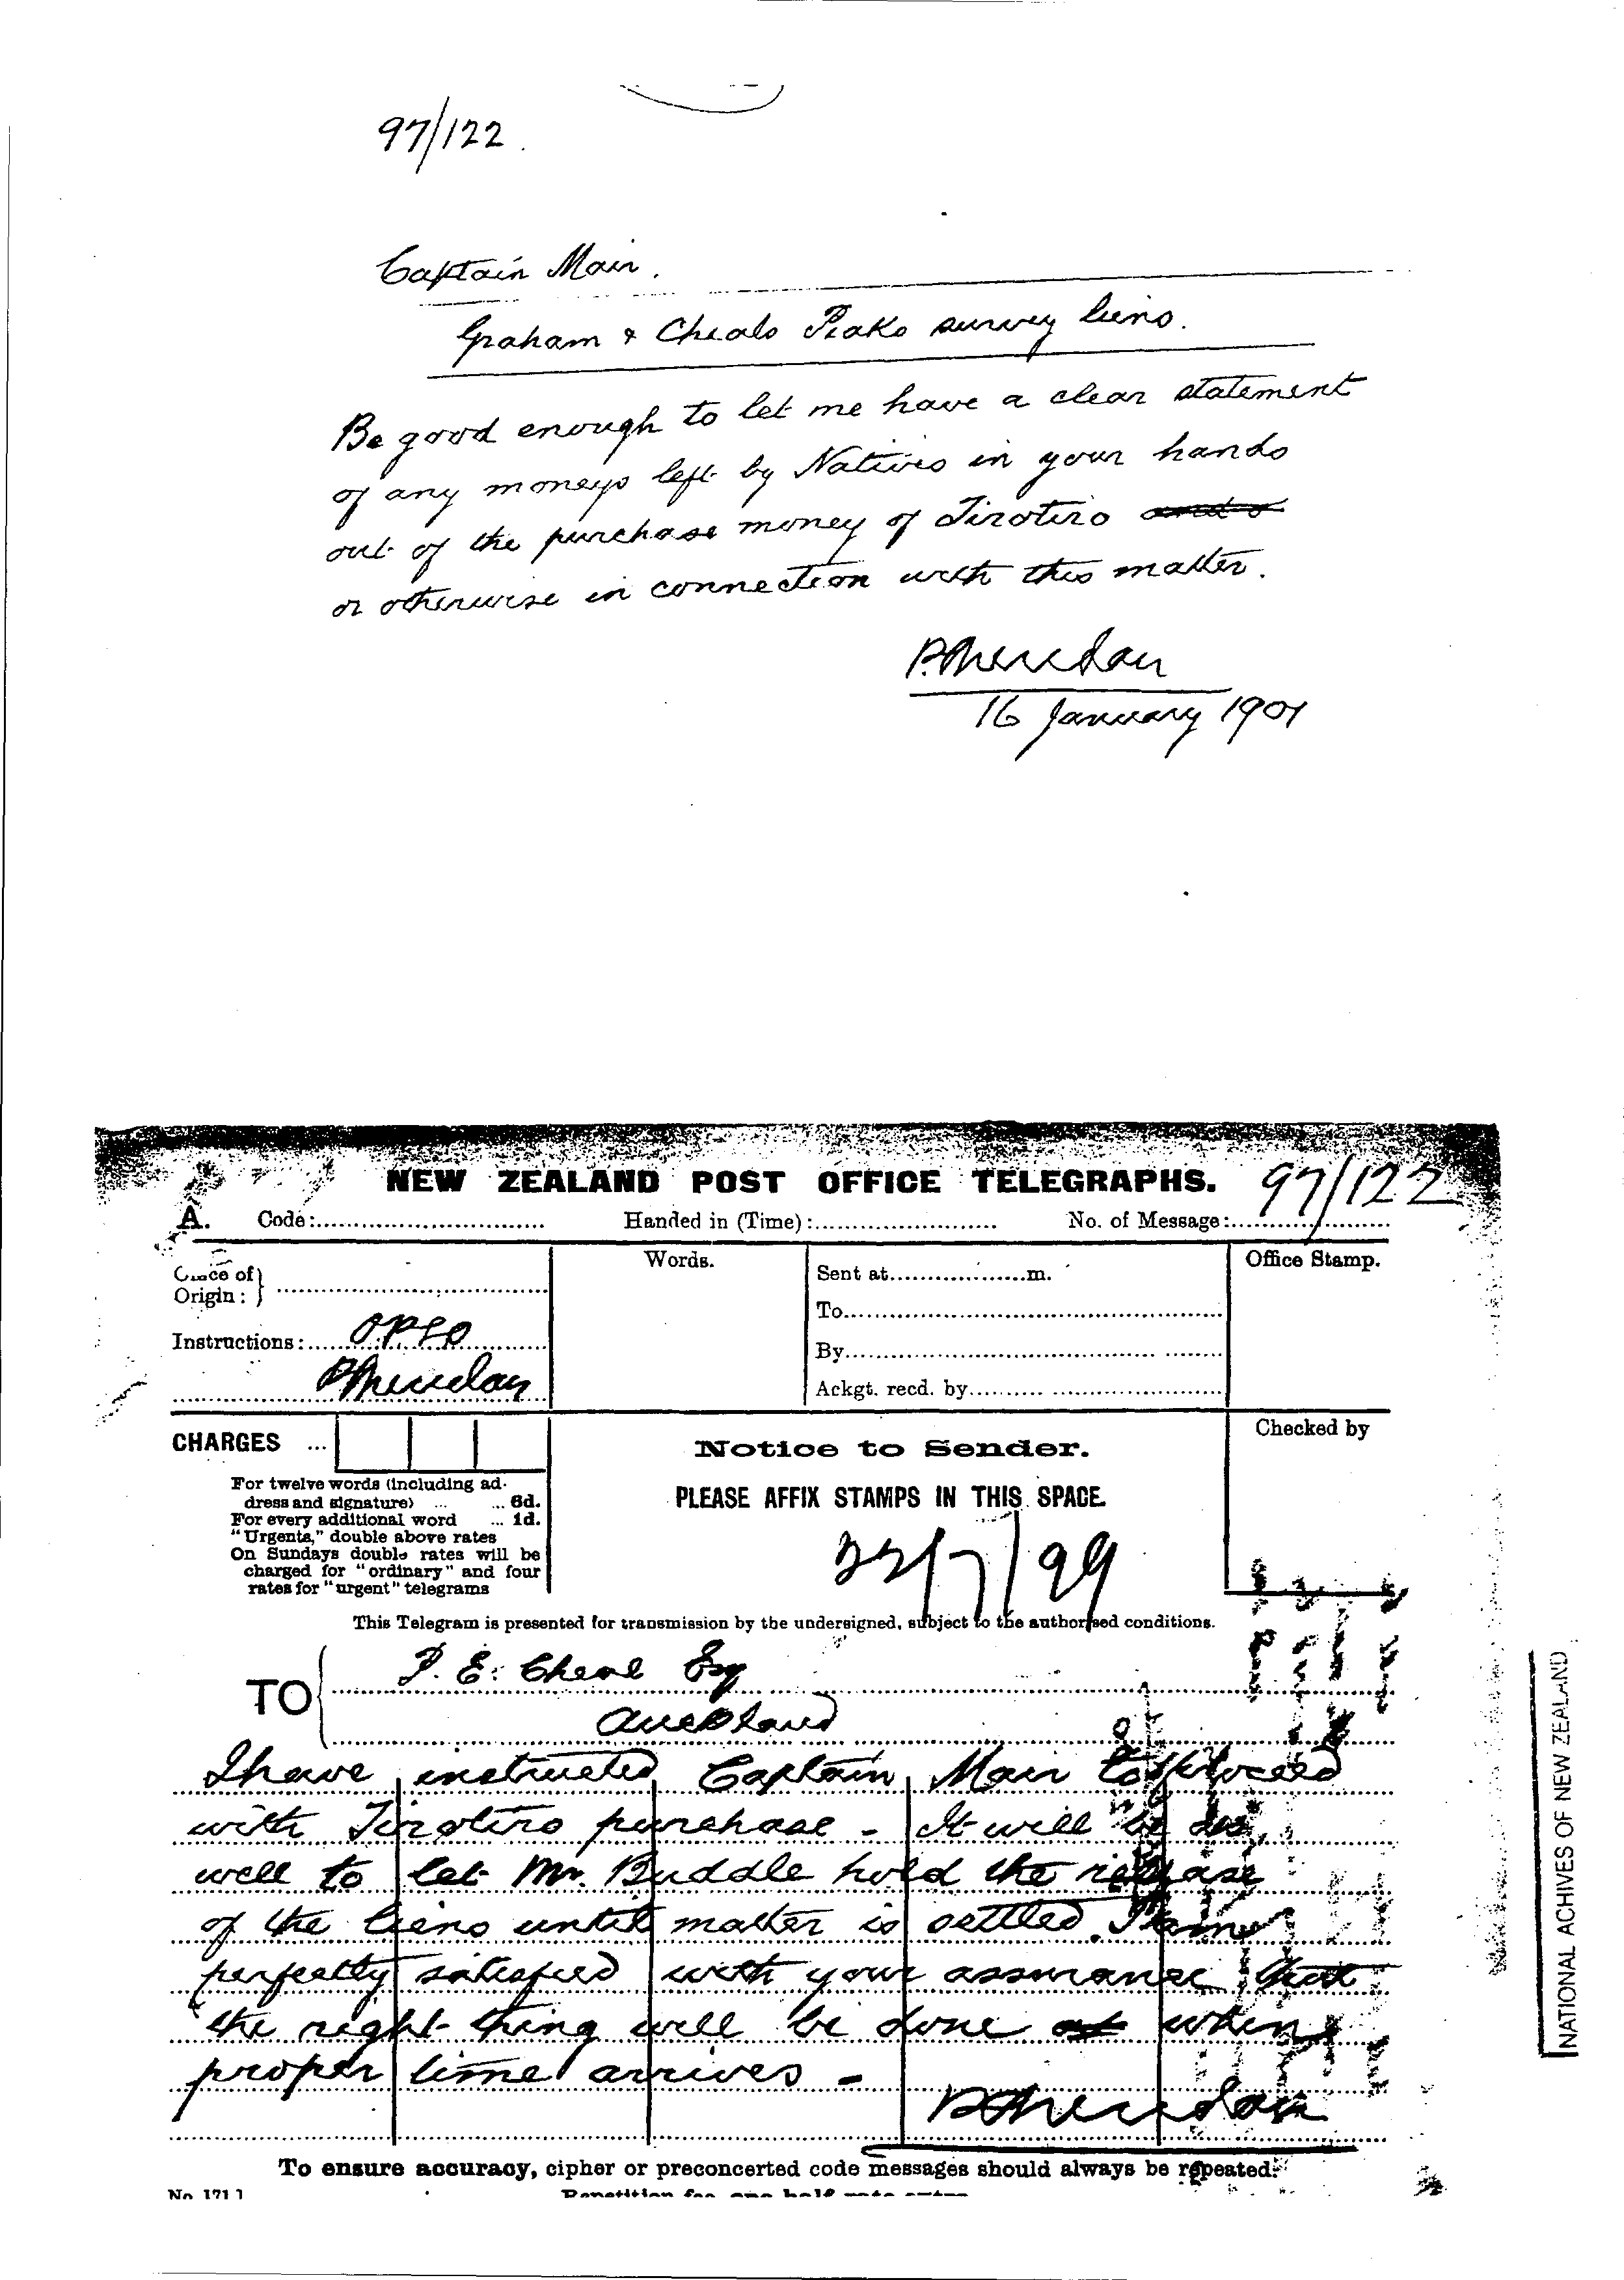 97/122.
Captain Mair.
Graham & Cheals Piako survey liens.
Be good enough to let me have a clear statement
of any moneys left by Natives in your hands
out of the purchase money of Tirotiro
or otherwise in connection with this matter.
P. Sheridan
16 January 1901
NEW ZEALAND POST OFFICE TELEGRAPHS. 97/122
A. Code: Handed in (Time): No. of Message:
Words.
Office Stamp.
Office of
Origin:
Sent at m.
To
Instructions: OPSO
By
P Sheridan
Ackgt. recd. by
CHARGES ...
Checked by
Notice to Sender.
For twelve words (including ad-
dress and signature) ... ... 6d.
For every additional word ... 1d.
"Urgents," double above rates
On Sundays double rates will be
charged for "ordinary" and four
rates for "urgent" telegrams
PLEASE AFFIX STAMPS IN THIS SPACE.
22/7/99
This Telegram is presented for transmission by the undersigned, subject to the authorised conditions.
TO
P. E. Cheal Esq
Auckland
I have instructed Captain Mair to proceed
with Tirotiro purchase - It will be as
well to let Mr. Buddle hold the release
of the liens until matter is settled. I am
perfectly satisfied with your assurance that
the right thing will be done at when
proper time arrives -
P Sheridan
To ensure accuracy, cipher or preconcerted code messages should always be repeated.
No. 171.]
Repetition fee, one half rate extra
NATIONAL ACHIVES OF NEW ZEALAND